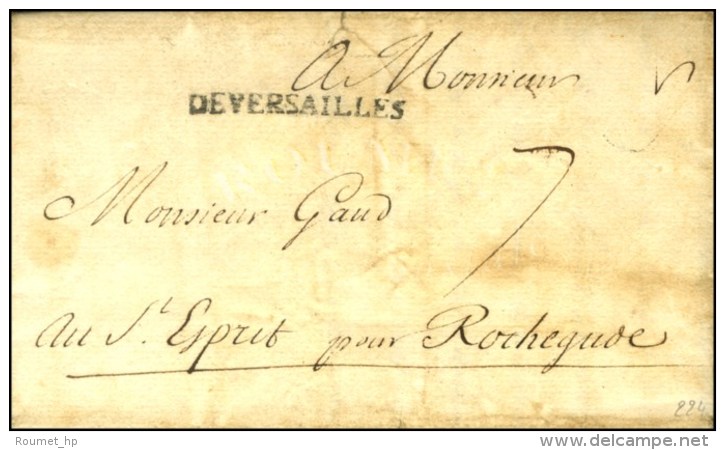 A Monsieur
DEVERSAILLES
7
Monsieur Gaud
au St. Esprit pour Rochegude
224
Roumet_hp
www.delcampe.net